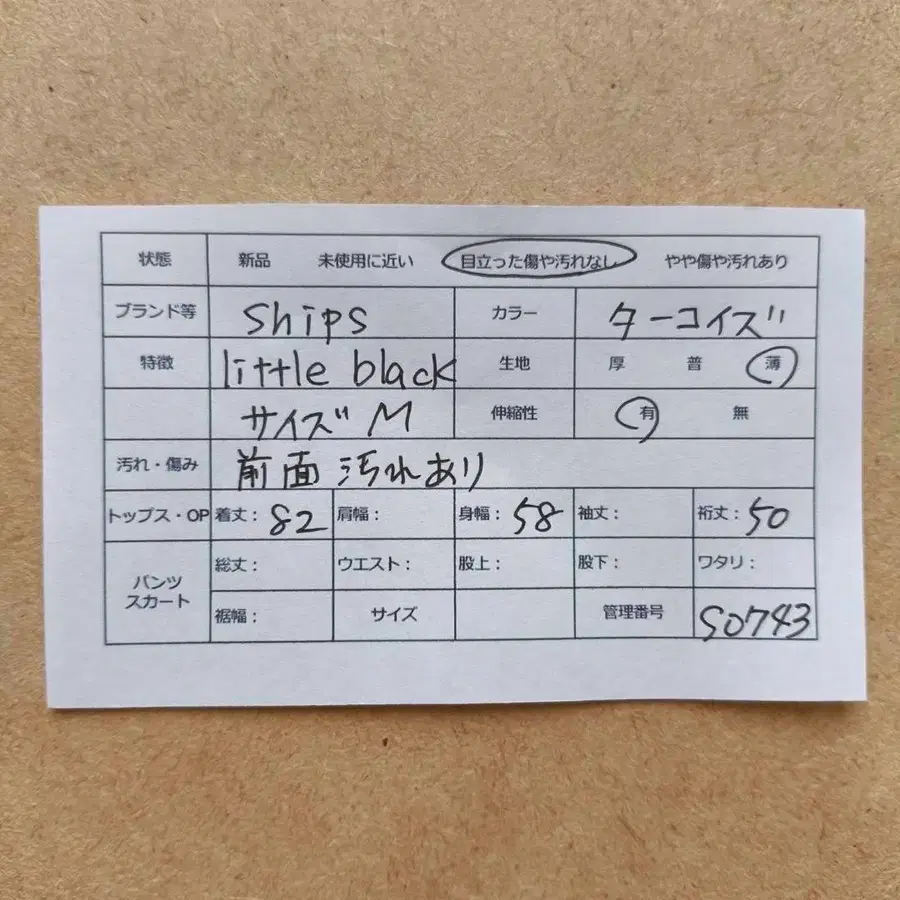 状態 新品 未使用に近い 目立った傷や汚れなし やや傷や汚れあり
ブランド等 ships カラー ターコイズ
特徴 little black 生地 厚 普 薄
サイズ M 伸縮性 有 無
汚れ・傷み 前面 汚れあり
トップス・OP 着丈： 82 肩幅： 身幅： 58 袖丈： 裄丈： 50
パンツ スカート 総丈： ウエスト： 股上： 股下： ワタリ：
裾幅： サイズ 管理番号 S0743